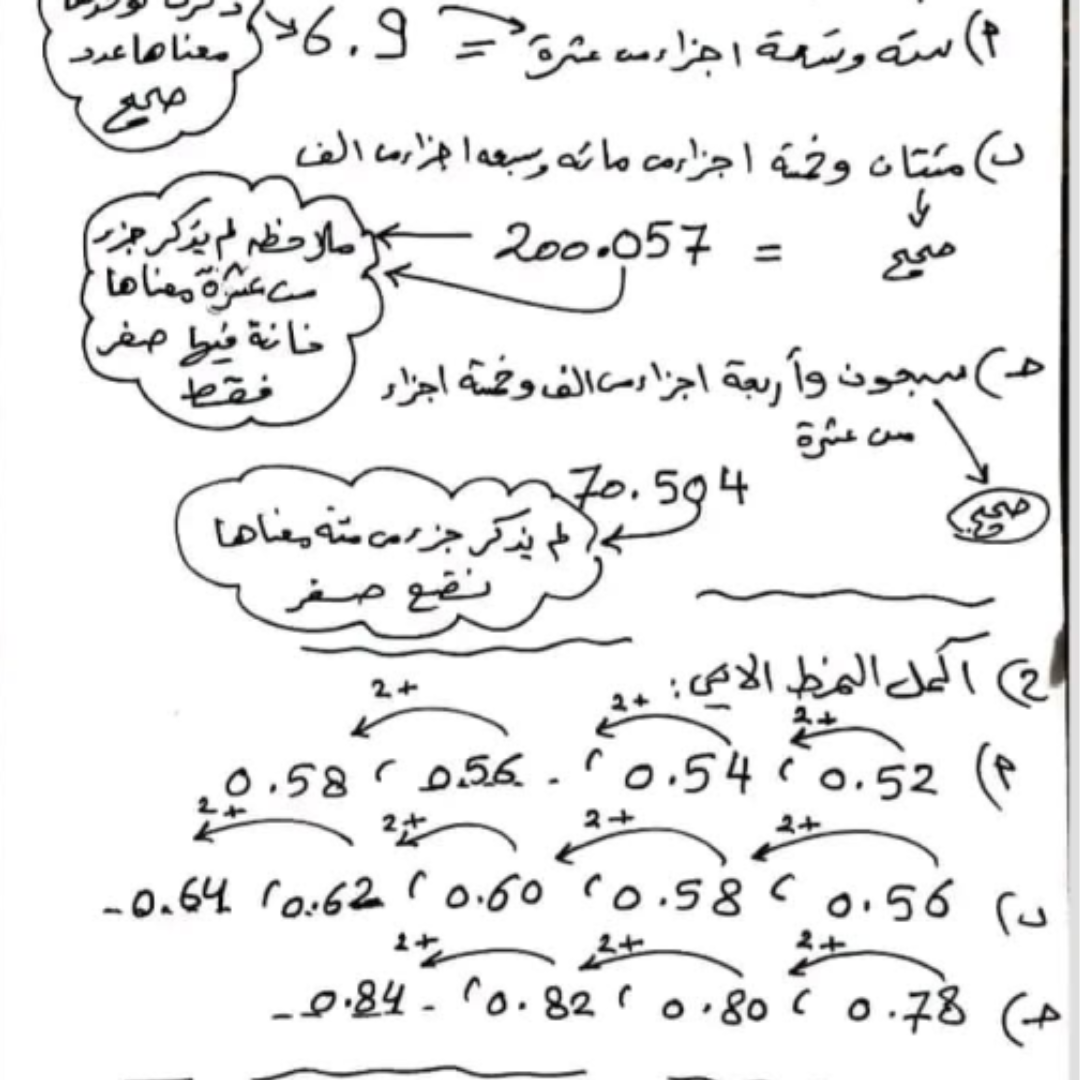 أ) ستة وتسعة اجزاء من عشرة = 6.9
معناها عدد
صحيح
ب) مئتان وخمسة اجزاء من مائه وسبعه اجزاء من الف
صحيح = 200.057
ملاحظه لم يذكر جزء
من عشرة معناها
خانة فيها صفر
فقط
جـ) سبعون وأربعة اجزاء من الف وخمسة اجزاء
من عشرة
صحيح
70.504
لم يذكر جزء من مئة معناها
نضع صفر
2) اكمل النمط الاتي:
2+ 2+ 2+
أ) 0.52 ، 0.54 ، 0.56 ، 0.58
2+ 2+ 2+ 2+
ب) 0.56 ، 0.58 ، 0.60 ، 0.62 ، 0.64
2+ 2+ 2+
جـ) 0.78 ، 0.80 ، 0.82 ، 0.84